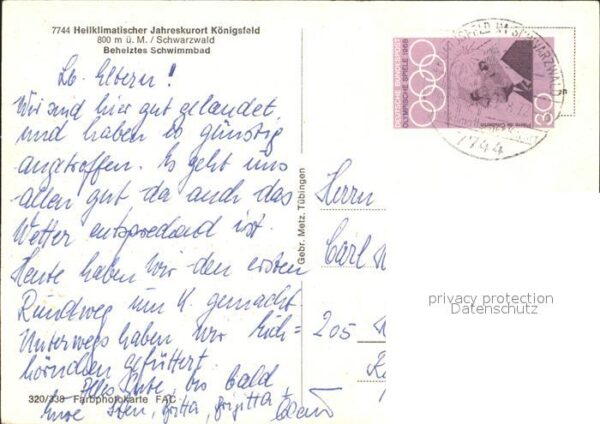 7744 Heilklimatischer Jahreskurort Königsfeld
800 m ü. M. / Schwarzwald
Beheiztes Schwimmbad
Lb. Eltern!
Wir sind hier gut gelandet
und haben es günstig
angetroffen. Es geht uns
allen gut da auch das
Wetter entsprechend ist.
Heute haben wir den ersten
Rundweg um K. gemacht.
Unterwegs haben wir Eich=
hörnchen gefüttert.
Alles Gute, bis bald
Eure Sten, Britta, Brigitta +
320/338 Farbphotokarte FAC
Gebr. Metz, Tübingen
DEUTSCHE BUNDESPOST
OLYMPISCHE SPIELE 1968
Pierre de Coubertin
30
SCHWARZWALD
7744
Herrn
Carl
205
privacy protection
Datenschutz